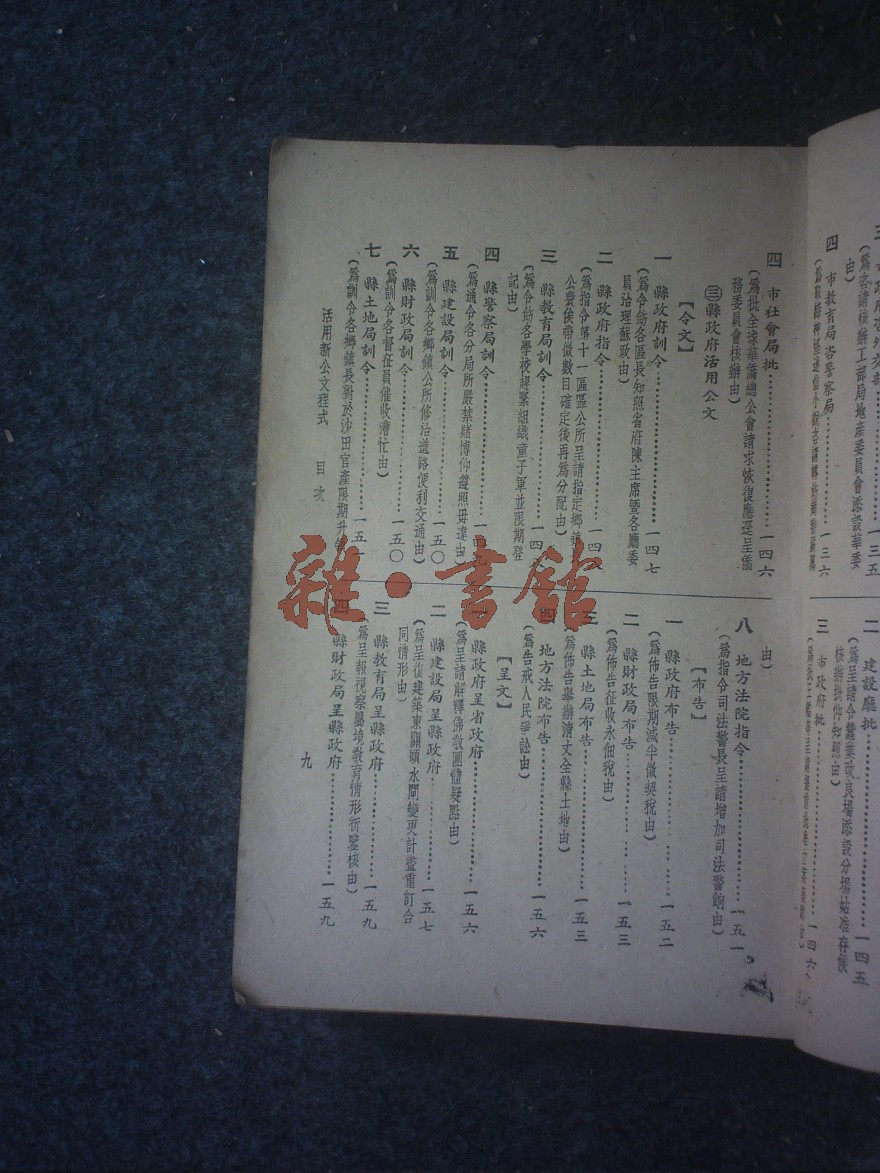 四
市教育局咨警察局
一三六
由)
一三五
二 建設廳批
一四五
三 市政府批
一四六
四 市社會局批
一四六
(為批全球華僑總公會請求恢復應逕呈僑
務委員會核辦由)
㊂縣政府活用公文
【令文】
一 縣政府訓令
一四七
(為令飭各區長知照省府陳主席暨各廳委
員治理蘇政由)
二 縣政府指令
(為指令第十一區區公所呈請指定鄉鎮
公費俟帶徵數目確定後再為分配由)
三 縣教育局訓令
(為令飭各學校趕緊組織童子軍並限期登
記由)
四 縣警察局訓令
一四九
(為通令各分局所嚴禁賭博仰遵照毋違由)
五 縣建設局訓令
一五〇
(為訓令各鄉鎮公所修治道路便利交通由)
六 縣財政局訓令
一五〇
(為訓令各督征員催收漕忙由)
七 縣土地局訓令
(為訓令各鄉鎮長對於沙田官產限期升
活用新公文程式 目次
由)
八 地方法院指令
一五一
(為指令司法警長呈請增加司法警餉由)
【布告】
一 縣政府布告
一五二
(為佈告限期減半徵契稅由)
二 縣財政局布告
一五三
(為佈告征收永佃稅由)
三 縣土地局布告
一五三
(為佈告舉辦清丈全縣土地由)
四 地方法院布告
一五六
(為告戒人民爭訟由)
【呈文】
一 縣政府呈省政府
一五六
(為呈請解釋佛教團體疑點由)
二 縣建設局呈縣政府
一五七
(為呈復建築東關頭水閘變更計畫重訂合
同情形由)
三 縣教育局呈縣政府
一五九
(為呈報視察屬境教育情形祈鑒核由)
四 縣財政局呈縣政府
一五九
九
雜·書館